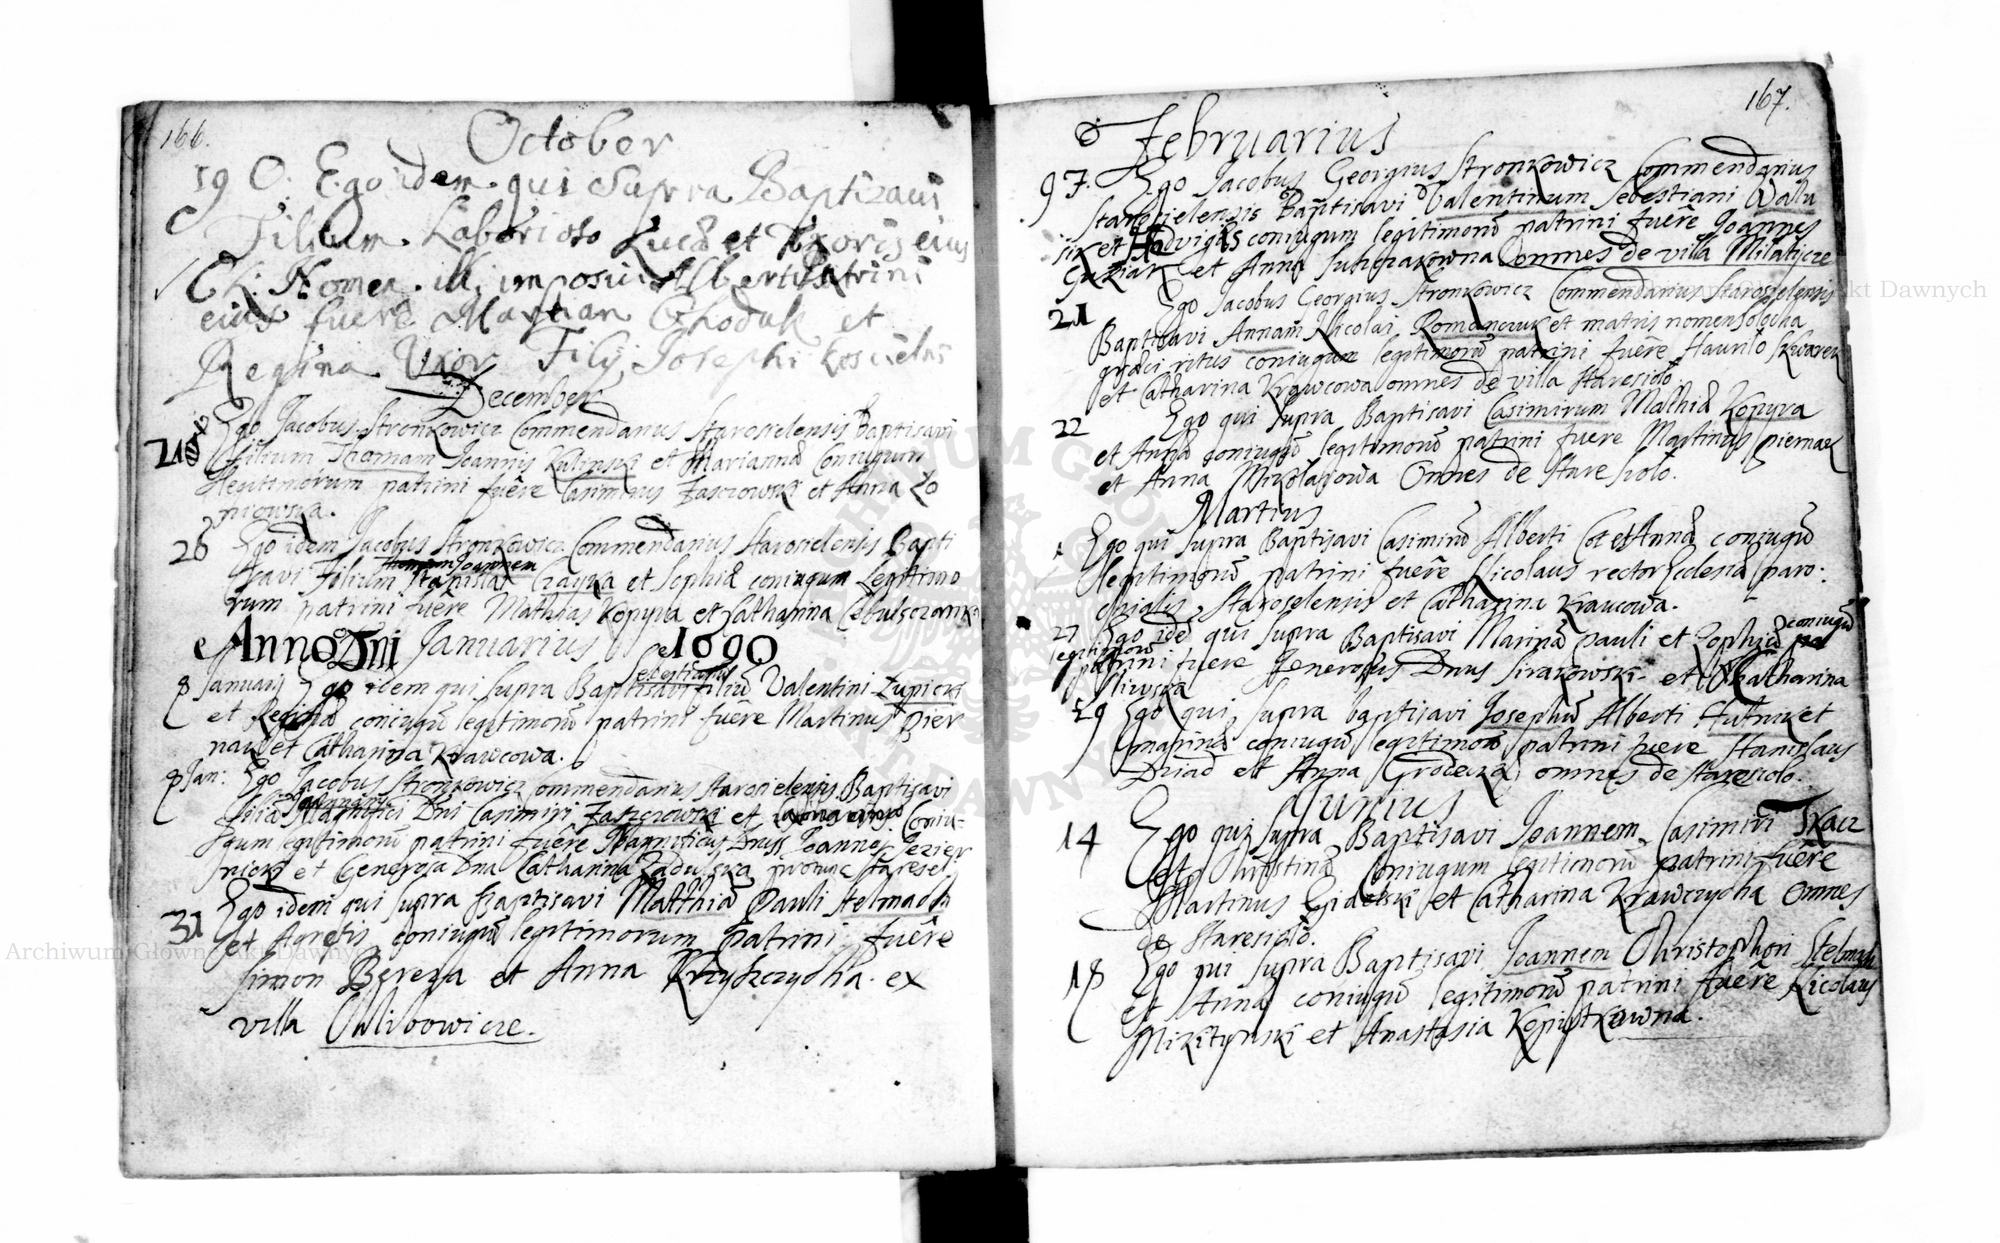 166.
October
19 O. Ego idem qui Supra Baptizavi
Filium Laborioso Lucæ et Uxoris eius
Nomen illi imposui Alberti Patrini
eius fuere Martian Chodak et
Regina Uxor Filij Josephi
December
21 Ego Jacobus Stronkowicz Commendarius Starosielensis Baptisavi
filium Thomam Joannis Kalinski et Mariannæ Coniugum
legitimorum patrini fuêre Casimirus Zasczowski et Anna Zo
niowska.
26 Ego idem Jacobus Stronkowicz Commendarius Starosielensis Bapti
Joannem
savi Filium Stanislai Czayka et Sophiæ coniugum Legittimo
rum patrini fuere Mathias Kopyra et Katharina
Anno Dni Januarius 1690
Sebestianus
8 Januarij Ego idem qui supra Baptisavi filiū Valentini Zupicki
et Reginæ coniugū legitimorū patrini fuêre Martinus Pier
nak et Catharina Krawcowa.
8 Jan: Ego Jacobus Stronkowicz Commendarius Starosielensis Baptisavi
Magnifici Dni Casimiri Zasczowski et Coniu-
gum legitimorū patrini fuêre Magnificus Dnus Joannes Jezier
nicki et Generosa Dna Catharina
31 Ego idem qui supra Baptisavi Matthiā Pauli Stelmacha
et Agnetis coniugū legitimorum patrini fuêre
Simon Bereza et Anna ex
villa Chlibowicze.
167.
Februarius
Ego Jacobus Georgius Stronkowicz Commendarius
Starosielensis Baptisavi Valentinum Sebestiani Walu
sik et Hedvigis coniugum legitimorū patrini fuêre Joannes
Guziak et Anna omnes de villa Milatycze
21 Ego Jacobus Georgius Stronkowicz Commendarius Starosielensis
Baptisavi Annam Nicolai Romanczuk et matris nomen Solocha
græci ritus coniugum legitimorū patrini fuêre Havrilo Skwarek
et Catharina Krawcowa omnes de villa Staresioło.
22 Ego qui supra Baptisavi Casimirum Mathiæ Kopyra
et Annæ coniugū legitimorū patrini fuere Martinus Piernak
et Anna Mikołajowa Omnes de Staresioło.
Martius
1 Ego qui supra Baptisavi Casimirū Alberti et Annæ coniugū
legitimorū patrini fuêre Nicolaus rector Ecclesiæ paro-
chialis Staroselensis et Catharina Kraucowa.
27 Ego idē qui supra Baptisavi Mariñā Pauli et Zophiæ coniugū
legitimorū
patrini fuere Generosus Dnus Sirakowski et Catharina
Sliwska
29 Ego qui supra baptisavi Josephū Alberti Hutnik et
Marinæ coniugū legitimorū patrini fuere Stanislaus
Dziad et Anna Grodecka omnes de Staresiolo.
Junius
14 Ego qui supra Baptisavi Joannem Casimiri Tkacz
et Christinæ Coniugum legitimorū patrini fuêre
Martinus Gidelski et Catharina Krawczycha Omnes
de Staresioło.
18 Ego qui supra Baptisavi Joannem Christophori Stelmach
et Annæ coniugū legitimorū patrini fuêre Nicolaus
Mikitynski et Anastasia Kopistkowna.
Archiwum Główne Akt Dawnych